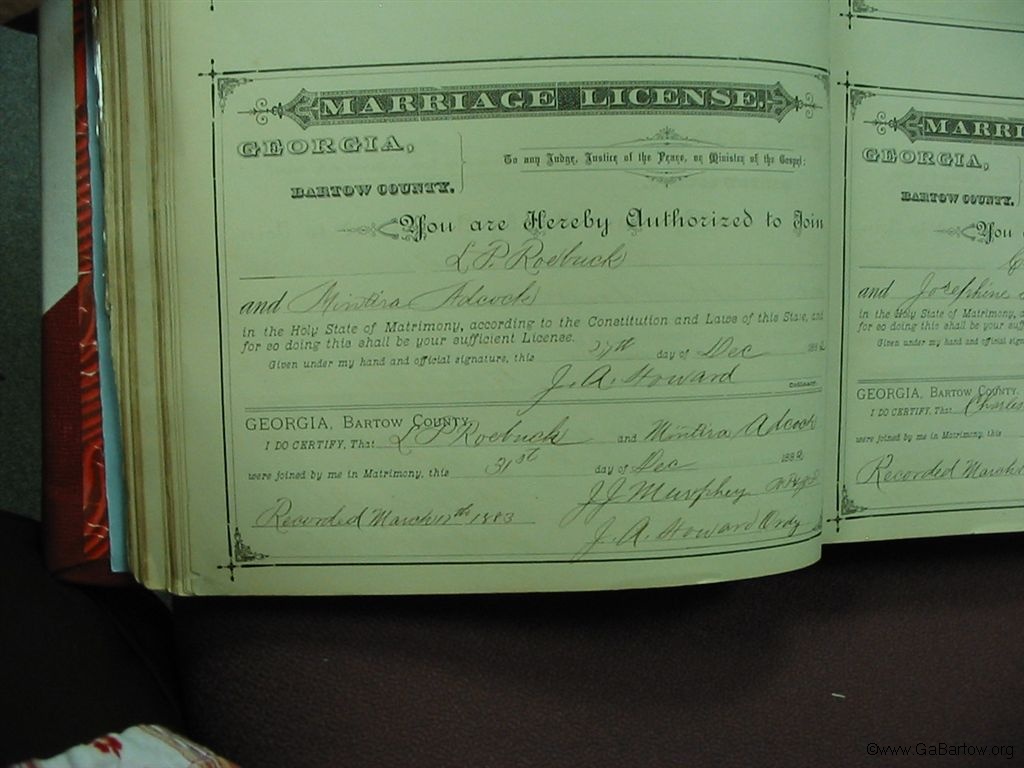 MARRIAGE LICENSE.
GEORGIA,
BARTOW COUNTY.
To any Judge, Justice of the Peace, or Minister of the Gospel:
You are Hereby Authorized to Join
L P. Roebuck
and Mintira Adcock
in the Holy State of Matrimony, according to the Constitution and Laws of this State, and
for so doing this shall be your sufficient License.
Given under my hand and official signature, this 27th day of Dec 1882
J. A. Howard Ordinary.
GEORGIA, BARTOW COUNTY.
I DO CERTIFY, That L P Roebuck and Mintira Adcock
were joined by me in Matrimony, this 31st day of Dec 1882
J J Murphey
Recorded March 12th 1883 J. A. Howard Ordy
MARRI
GEORGIA,
BARTOW COUNTY.
You
and Josephine
in the Holy State of Matrim
for so doing this shall be your suff
Given under my hand and official sign
GEORGIA, BARTOW COUNTY.
I DO CERTIFY, That Charles
were joined by me in Matrimony, this
Recorded March
©www.GaBartow.org